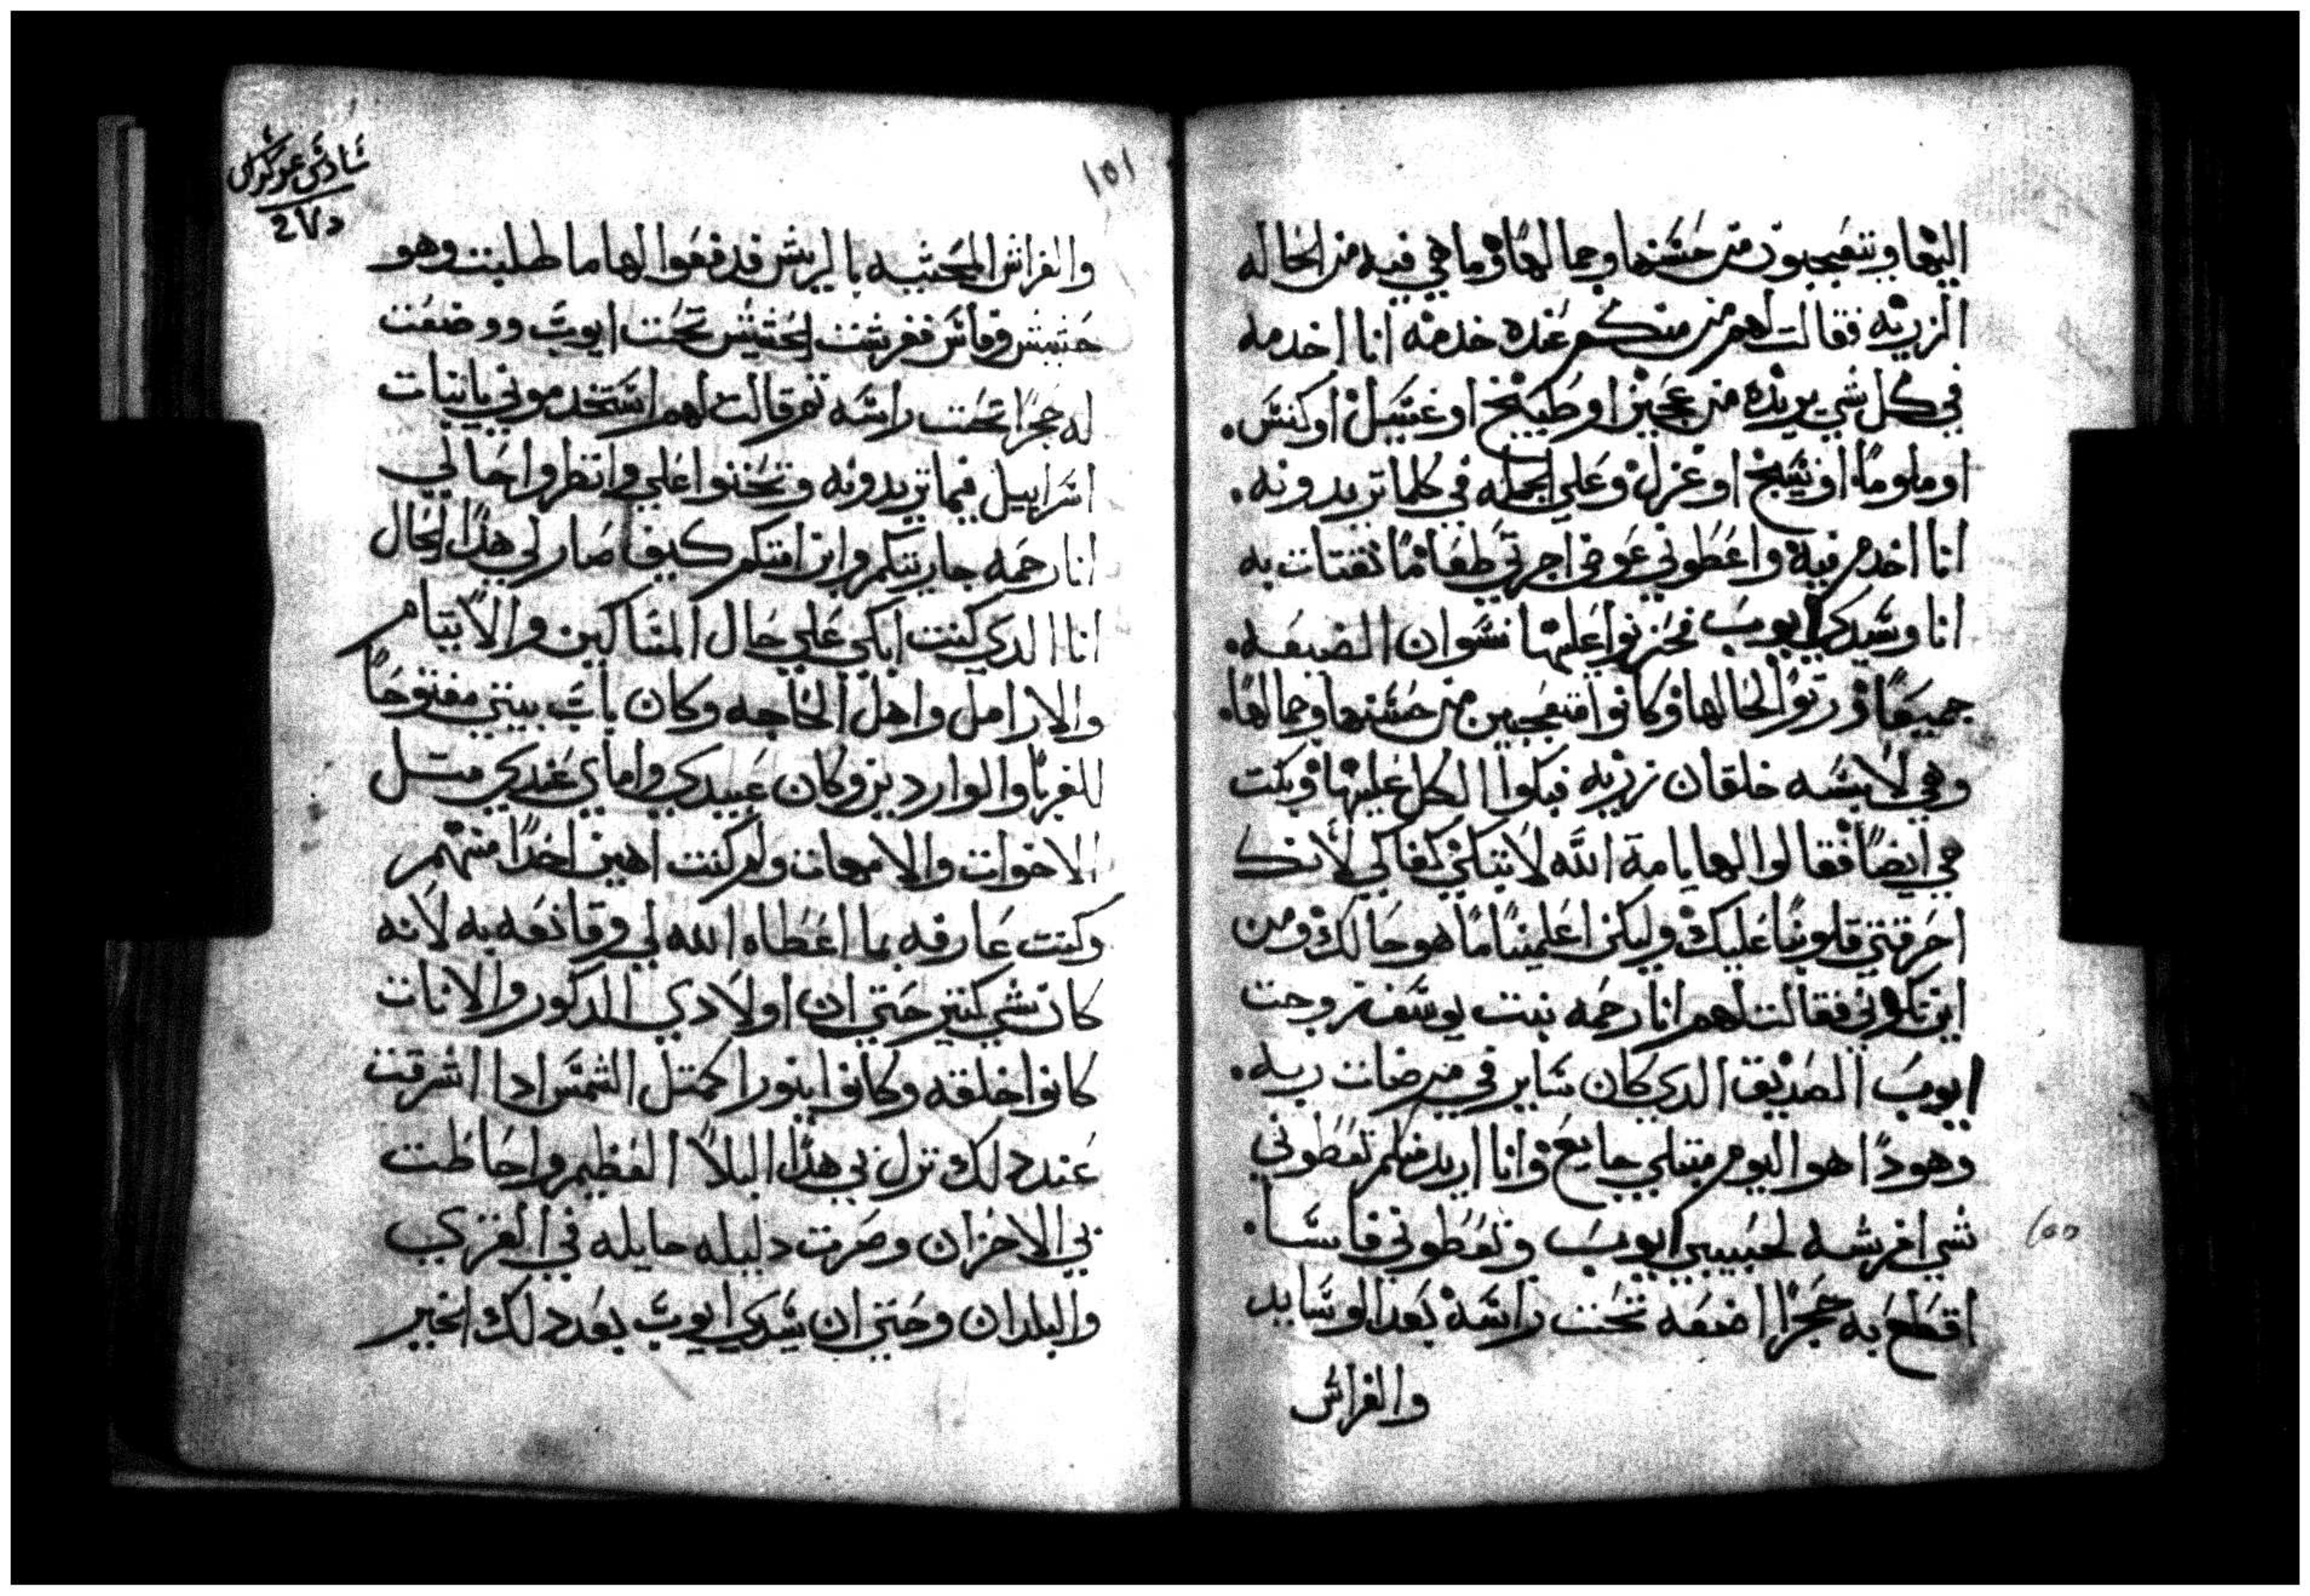 اليها ويتعجبون من حسنها وجمالها وما هي فيه من الحاله
الزريه فقالت لهم من منكم عنده خدمه انا اخدمه
في كل شي يريده من عجين او طبيخ او غسيل او كنس.
او ملو ما او نسيج او غزل وعلي الجمله في كلما تريدونه.
انا اخدم فيه واعطوني عوض اجرتي طعاما نقتات به
انا وسيدي ايوب فحزنوا عليها نسوان الضيعه.
جميعا ورتوا لحالها وكانوا متعجبين من حسنها وجمالها.
وهي لابسه خلقان زريه فبكوا الكل عليها وبكت
هي ايضا فقالوا لها يا امة الله لا تبكي كفاكي لانك
احرقتي قلوبنا عليك ولكن اعلمينا ما هو حالك ومن
اين تكوني فقالت لهم انا رحمه بنت يوسف زوجت
ايوب الصديق الدي كان ساير في مرضات ربه.
وهودا هو اليوم مبتلي جايع وانا اريد منكم تعطوني
شي افرشه لحبيبي ايوب وتعطوني فاسا.
اقطع به حجرا اضعه تحت راسه بعد الوسايد
والفراش
١٥٥
١٥١
سادس عشر كراس
د٧٢
والفراش المحشيه بالريش فدفعوا لها ما طلبت وهو
حشيش وفاس ففرشت الحشيش تحت ايوب ووضعت
له حجرا تحت راسه تم قالت لهم استخدموني يا بنات
اسراييل فيما تريدونه وتحننوا علي وانظروا حالي
انا رحمه جاريتكم وابن امتكم كيف صار لي هدا الحال
انا الدي كنت ابكي علي حال المساكين والايتام
والارامل واهل الحاجه وكان باب بيتي مفتوحا
للغربا والواردين وكان عبيدي واماي عندي متل
الاخوات والامهات ولم كنت اهين احدا منهم
وكنت عارفه بما اعطاه الله لي وقانعه به لانه
كان شي كتير حتي ان اولادي الدكور والانات
كانوا خلقه وكانوا بنورا كمتل الشمس ادا اشرقت
عند دلك نزل بي هدا البلا العظيم واحاطت
بي الاحزان وصرت دليله حايله في القري
والبلدان وحتي ان سيدي ايوب بعد دلك الخير